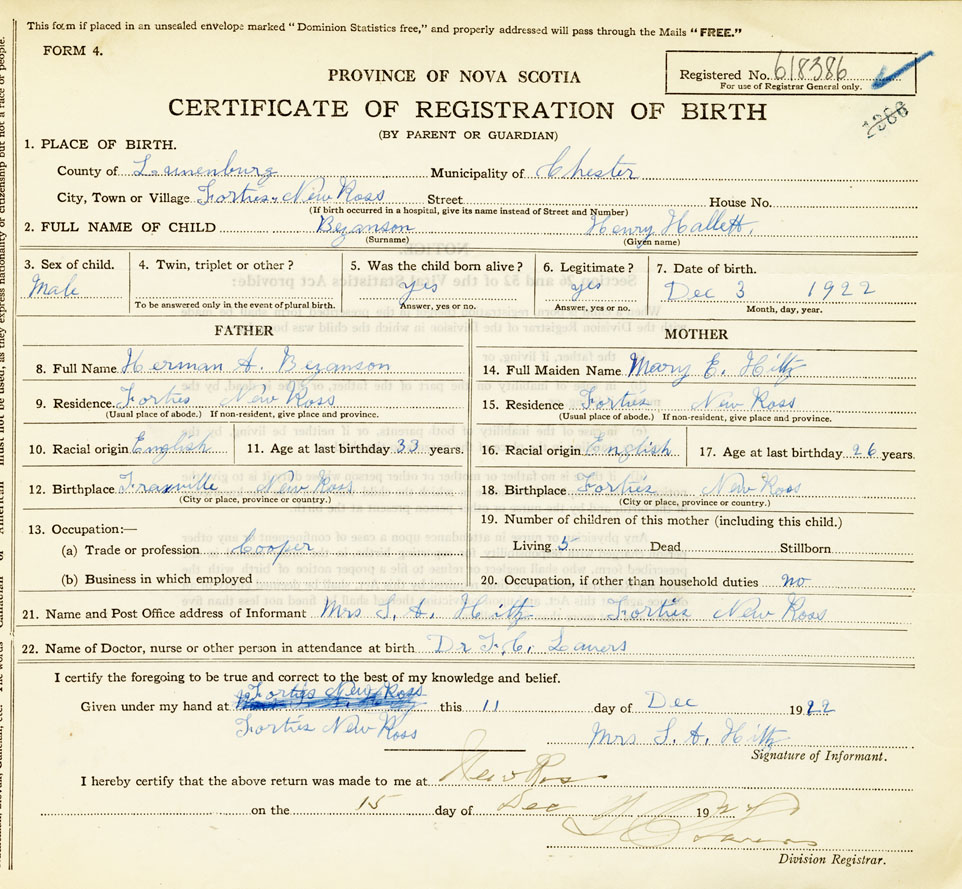 This form if placed in an unsealed envelope marked "Dominion Statistics free," and properly addressed will pass through the Mails "FREE."
FORM 4.
Registered No. 618386
For use of Registrar General only.
PROVINCE OF NOVA SCOTIA
CERTIFICATE OF REGISTRATION OF BIRTH
(BY PARENT OR GUARDIAN)
1. PLACE OF BIRTH.
County of Lunenburg Municipality of Chester
City, Town or Village Forties New Ross Street House No.
(If birth occurred in a hospital, give its name instead of Street and Number)
2. FULL NAME OF CHILD Bezanson Henry Hallett.
(Surname) (Given name)
3. Sex of child. 4. Twin, triplet or other? 5. Was the child born alive? 6. Legitimate? 7. Date of birth.
Male yes yes Dec 3 1922
To be answered only in the event of plural birth. Answer, yes or no. Answer, yes or no. Month, day, year.
FATHER MOTHER
8. Full Name Herman A. Bezanson 14. Full Maiden Name Mary E. Hiltz
9. Residence. Forties New Ross 15. Residence Forties New Ross
(Usual place of abode.) If non-resident, give place and province. (Usual place of abode.) If non-resident, give place and province.
10. Racial origin English 11. Age at last birthday 33 years. 16. Racial origin English 17. Age at last birthday 26 years.
12. Birthplace Fraxville New Ross 18. Birthplace Forties New Ross
(City or place, province or country.) (City or place, province or country.)
13. Occupation:— 19. Number of children of this mother (including this child.)
(a) Trade or profession Cooper Living 5 Dead Stillborn
(b) Business in which employed 20. Occupation, if other than household duties no
21. Name and Post Office address of Informant Mrs S. A. Hiltz Forties New Ross
22. Name of Doctor, nurse or other person in attendance at birth Dr F. C. Lavers
I certify the foregoing to be true and correct to the best of my knowledge and belief.
Forties New Ross
Given under my hand at this 11 day of Dec 1922
Forties New Ross Mrs S. A. Hiltz
Signature of Informant.
I hereby certify that the above return was made to me at New Ross
on the 15 day of Dec 192
Division Registrar.